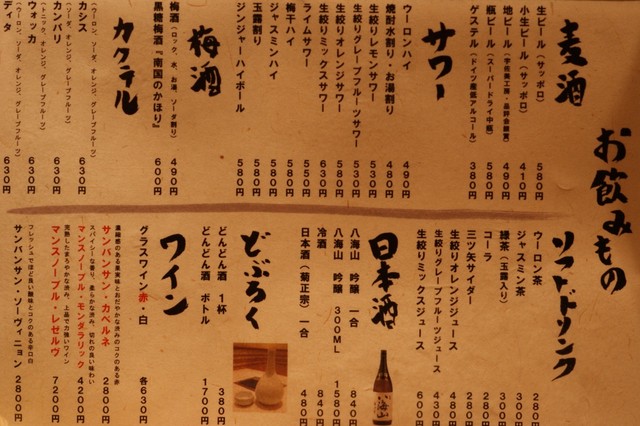 お飲みもの
麦酒
生ビール(サッポロ) 580円
小生ビール(サッポロ) 410円
地ビール 490円
瓶ビール(スーパードライ中瓶) 580円
ゲステル(ドイツ産低アルコール) 380円
サワー
ウーロンハイ 490円
焼酎水割り・お湯割り 480円
生絞りレモンサワー 530円
生絞りグレープフルーツサワー 530円
生絞りオレンジサワー 580円
生絞りミックスサワー 630円
ライムサワー 550円
梅干ハイ 580円
ジャスミンハイ 550円
玉露割り 580円
ジンジャーハイボール 580円
梅酒
梅酒(ロック、水、お湯、ソーダ割り) 490円
黒糖梅酒『南国のかほり』 600円
カクテル
カシス
(ウーロン、ソーダ、オレンジ、グレープフルーツ) 630円
カンパリ
(ソーダ、オレンジ、グレープフルーツ) 630円
ウォッカ
(トニック、オレンジ、グレープフルーツ) 630円
ディタ
(ウーロン、ソーダ、オレンジ、グレープフルーツ) 630円
ソフトドリンク
ウーロン茶 280円
ジャスミン茶 280円
緑茶(玉露入り) 300円
コーラ 280円
三ツ矢サイダー 280円
生絞りオレンジジュース 480円
生絞りグレープフルーツジュース 430円
生絞りミックスジュース 600円
日本酒
八海山 吟醸 一合 840円
八海山 吟醸 300ML 1580円
冷酒 840円
日本酒(菊正宗)一合 480円
八海山
どぶろく
どんどん酒 1杯 380円
どんどん酒 ボトル 1700円
ワイン
グラスワイン赤・白 各630円
サンバンサン・カベルネ 2800円
濃縮感のある果実味とおだやかな渋みのコクのある赤
マンスノーブル・モンダラリック 4200円
スパイシーな香り、柔らかな渋み、切れの良い味わい
マンスノーブル・レゼルヴ 7200円
完熟したまろやかな渋み、上品で力強いワイン
サンバンサン・ソーヴィニョン 2800円
フレッシュでほど良い酸味とコクのある辛口白